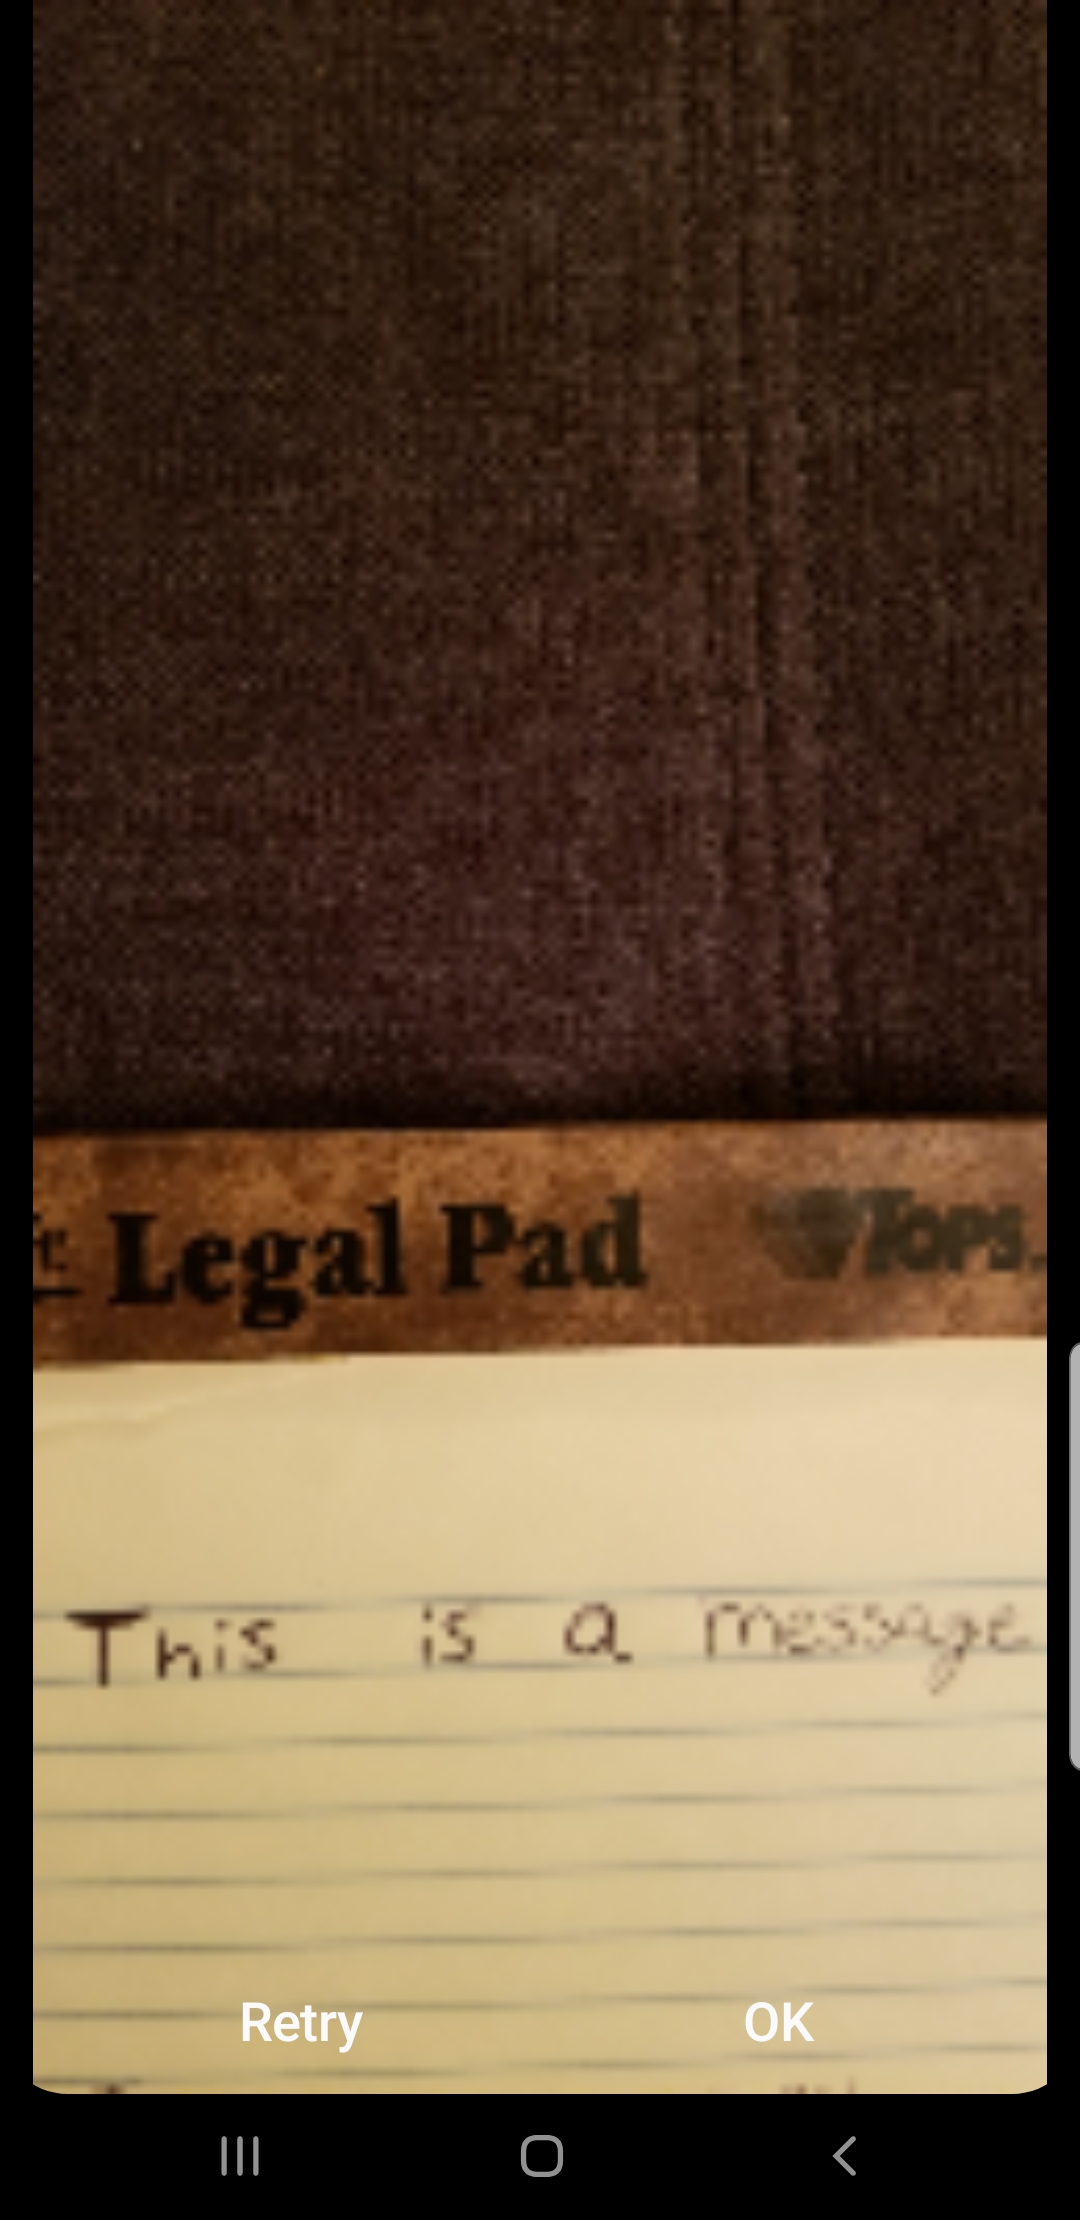 Legal Pad TOPS
This is a message
Retry OK